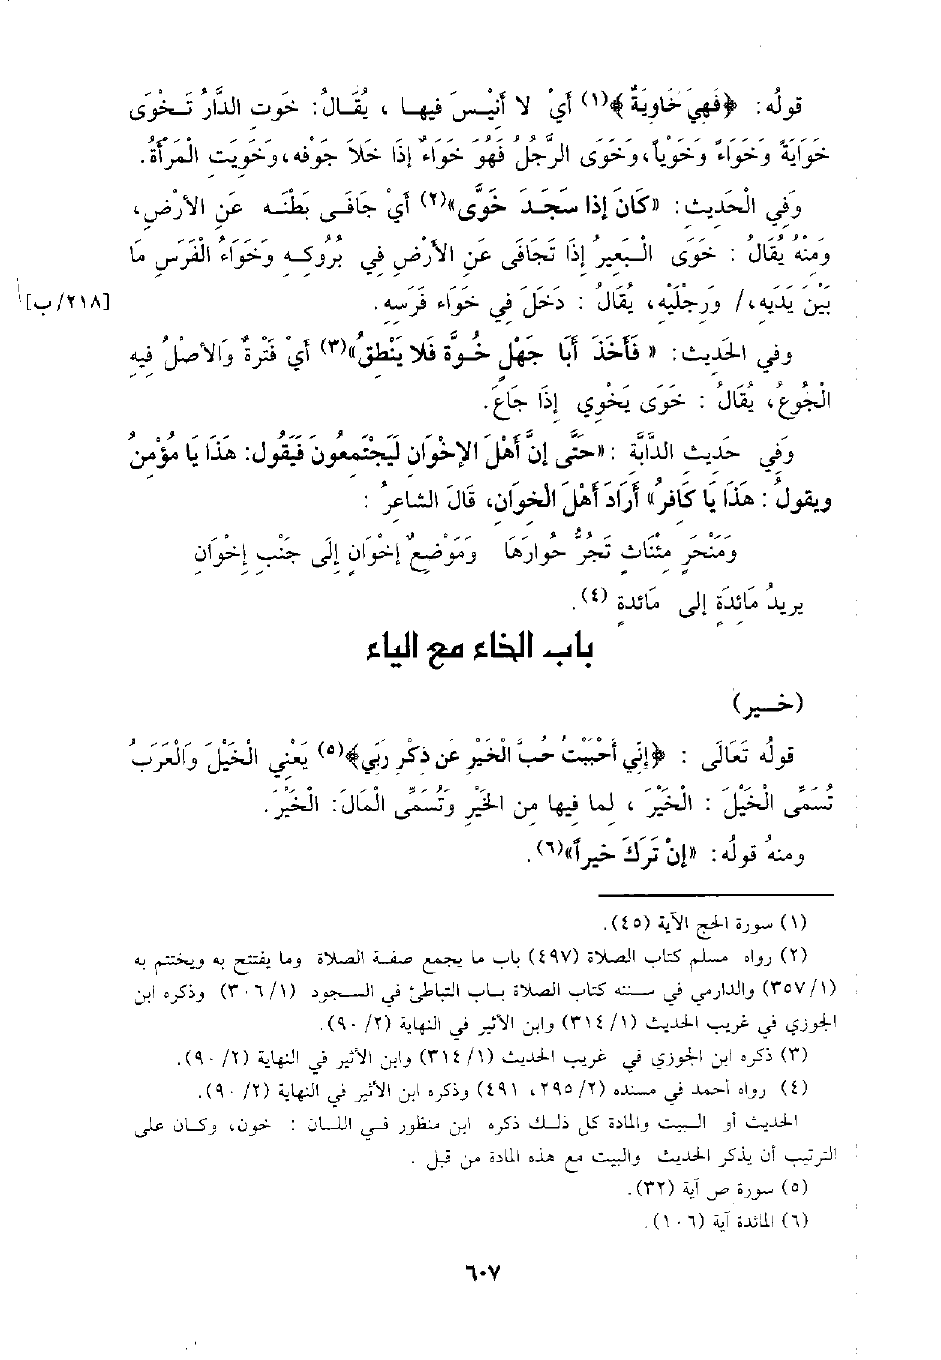 قولُه: ﴿فَهِيَ خَاوِيَةٌ﴾(١) أيْ لا أَنيْسَ فيها ، يُقَالُ: خَوت الدَّارُ تَخْوَى
خَوَايَةً وَخَوَاءً وَخَوْياً، وَخَوَى الرَّجُلُ فَهُوَ خَوَاءٌ إذَا خَلاَ جَوْفه، وَخَوِيَت الْمَرْأَةُ.
وَفِي الْحَديث: «كَانَ إذا سَجَدَ خَوَّى»(٢) أيْ جَافَى بَطْنَه عَنِ الأرْضِ،
وَمنْهُ يُقَالُ : خَوَى الْبَعيرُ إذَا تَجَافَى عَنِ الأَرْضِ في بُرُوكه وَخَوَاءُ الْفَرَس مَا
بَيْنَ يَدَيه، / وَرجْلَيْه، يُقَالُ : دَخَلَ في خَوَاء فَرَسه. [٢١٨/ب]
وفي الحَديث: « فَأَخَذَ أَبَا جَهْلٍ خُوَّة فَلا يَنْطقُ»(٣) أيْ فَتْرةٌ وَالأصْلُ فيه
الْجُوعُ، يُقَالُ : خَوَى يَخْوِي إذَا جَاعَ.
وَفي حَديث الدَّابَّة :«حَتَّى إنَّ أهْلَ الإخْوَان لَيَجْتَمعُونَ فَيَقُول: هَذَا يَا مُؤْمنُ
ويقولُ : هَذَا يَا كَافرُ» أَرَادَ أهْلَ الْخوَان، قَالَ الشاعرُ :
وَمَنْحَرِ مئْنَاثٍ تَجُرُّ حُوارَهَا وَمَوْضِعُ إخْوَانٍ إلَى جَنْبِ إخْوَانِ
يريدُ مَائدَةٍ إلى مَائدةٍ (٤).
باب الخاء مع الياء
(خــير)
قولُه تَعَالَى : ﴿إنِّي أَحْبَبْتُ حُبَّ الْخَيْرِ عَن ذكْرِ رَبّي﴾(٥) يَعْني الْخَيْلَ وَالْعَرَبُ
تُسَمِّى الْخَيْلَ : الْخَيْرَ ، لما فيها من الخَيْرِ وَتُسَمِّى الْمَالَ: الْخَيْرَ.
ومنهُ قولُه: «إنْ تَرَكَ خيراً»(٦).
(١) سورة الحج الآية (٤٥).
(٢) رواه مسلم كتاب الصلاة (٤٩٧) باب ما يجمع صفة الصلاة وما يفتتح به ويختتم به
(٣٥٧/١) والدارمي في سننه كتاب الصلاة باب التباطئ في السجود (٣٠٦/١) وذكره ابن
الجوزي في غريب الحديث (٣١٤/١) وابن الأثير في النهاية (٩٠/٢).
(٣) ذكره ابن الجوزي في غريب الحديث (٣١٤/١) وابن الأثير في النهاية (٩٠/٢).
(٤) رواه أحمد في مسنده (٢٩٥/٢، ٤٩١) وذكره ابن الأثير في النهاية (٩٠/٢).
الحديث أو البيت والمادة كل ذلك ذكره ابن منظور في اللسان : خون، وكان على
الترتيب أن يذكر الحديث والبيت مع هذه المادة من قبل .
(٥) سورة ص آية (٣٢).
(٦) المائدة آية (١٠٦).
٦٠٧